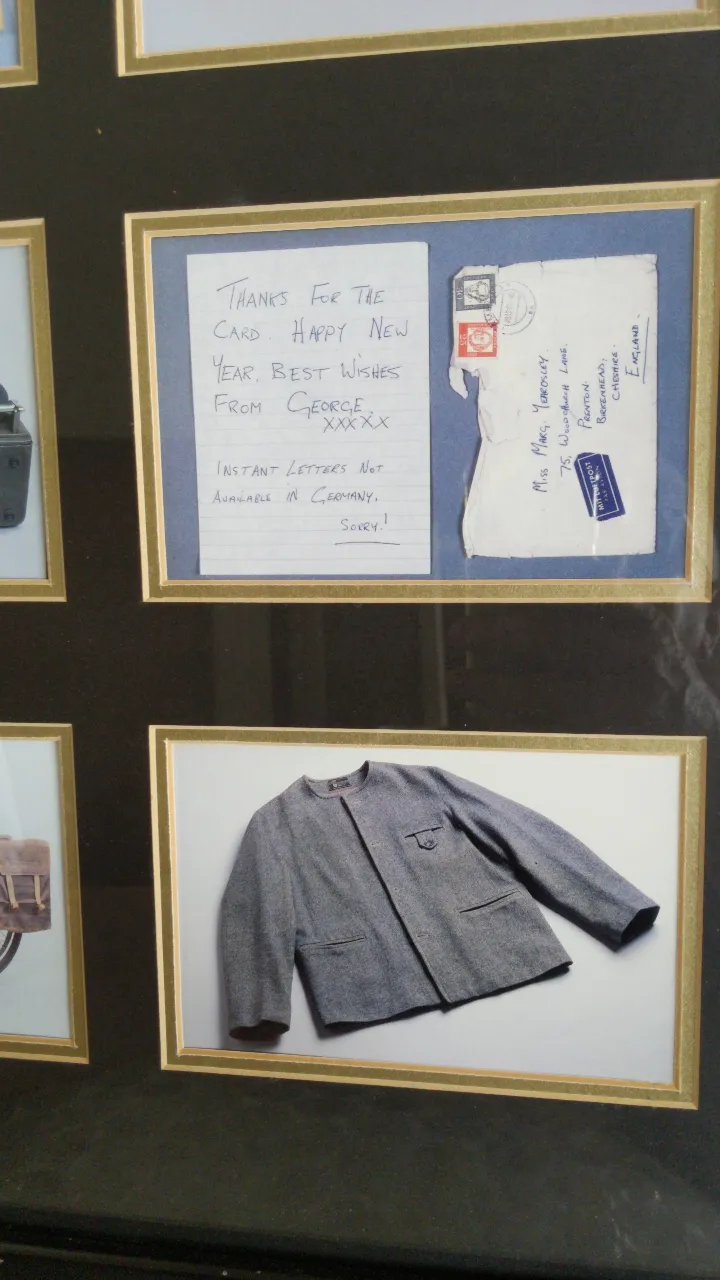 THANKS FOR THE
CARD. HAPPY NEW
YEAR. BEST WISHES
FROM GEORGE.
XXXXX
INSTANT LETTERS NOT
AVAILABLE IN GERMANY.
SORRY!
MISS MARG. YEARDSLEY.
75, WOODCHURCH LANE.
PRENTON.
BIRKENHEAD,
CHESHIRE.
ENGLAND.
MIT LUFTPOST
PAR AVION